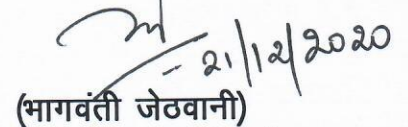 21/12/2020
(भागवंती जेठवानी)